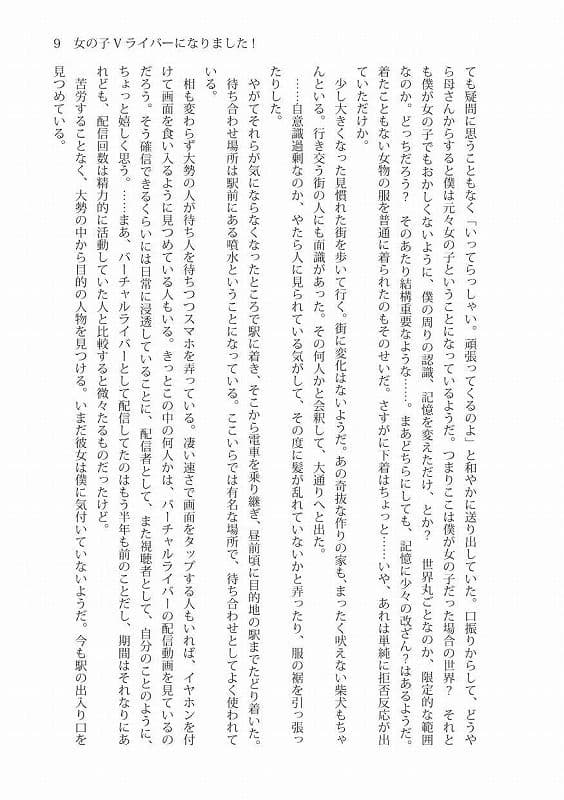 9　女の子Vライバーになりました！
ても疑問に思うこともなく「いってらっしゃい。頑張ってくるのよ」と和やかに送り出していた。口振りからして、どうや
ら母さんからすると僕は元々女の子ということになっているようだ。つまりここは僕が女の子だった場合の世界？　それと
も僕が女の子でもおかしくないように、僕の周りの認識、記憶を変えただけ、とか？　世界丸ごとなのか、限定的な範囲
なのか。どっちだろう？　そのあたり結構重要なような……。まあどちらにしても、記憶に少々の改ざん？はあるようだ。
着たこともない女物の服を普通に着られたのもそのせいだ。さすがに下着はちょっと……いや、あれは単純に拒否反応が出
ていただけか。
　少し大きくなった見慣れた街を歩いて行く。街に変化はないようだ。あの奇抜な作りの家も、まったく吠えない柴犬もちゃ
んといる。行き交う街の人にも面識があった。その何人かと会釈して、大通りへと出た。
　……自意識過剰なのか、やたら人に見られている気がして、その度に髪が乱れていないかと弄ったり、服の裾を引っ張っ
たりした。
　やがてそれらが気にならなくなったところで駅に着き、そこから電車を乗り継ぎ、昼前頃に目的地の駅までたどり着いた。
　待ち合わせ場所は駅前にある噴水ということになっている。ここいらでは有名な場所で、待ち合わせとしてよく使われて
いる。
　相も変わらず大勢の人が待ち人を待ちつつスマホを弄っている。凄い速さで画面をタップする人もいれば、イヤホンを付
けて画面を食い入るように見つめている人もいる。きっとこの中の何人かは、バーチャルライバーの配信動画を見ているの
だろう。そう確信できるくらいには日常に浸透していることに、配信者として、また視聴者として、自分のことのように、
ちょっと嬉しく思う。……まあ、バーチャルライバーとして配信してたのはもう半年も前のことだし、期間はそれなりにあ
れども、配信回数は精力的に活動していた人と比較すると微々たるものだったけど。
　苦労することなく、大勢の中から目的の人物を見つける。いまだ彼女は僕に気付いていないようだ。今も駅の出入り口を
見つめている。